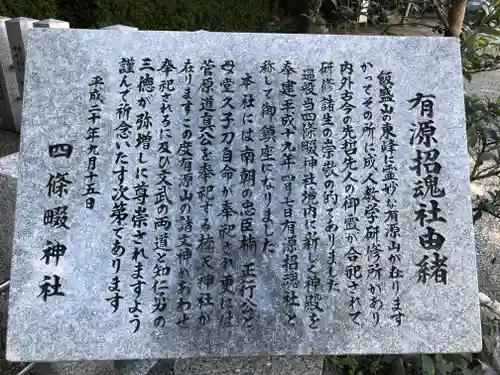 有源招魂社由緒
飯盛山の東峰に霊妙な有源山が在ります
かつてその所に成人教学研修所があり
内外古今の先哲先人の御霊が合祀されて
研修諸生の崇敬の的でありました
過般当四條畷神社境内に新しく神殿を
奉建平成十九年四月七日有源招魂社と
称して御鎮座になりました
本社には南朝の忠臣楠正行公と
母堂久子刀自命が奉祀され更には
菅原道真公を奉祀する楠天神社が
在りますこの度有源山の諸文神があわせ
奉祀されるに及び文武の両道と知仁勇の
三徳が弥増しに尊崇されますよう
謹んで祈念いたす次第であります
平成二十年九月十五日
四條畷神社